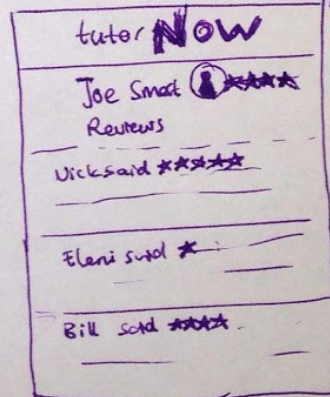 tutor NOW
Joe Smart ★★★★
Reviews
Nick said ★★★★★
Eleni said ★
Bill said ★★★★